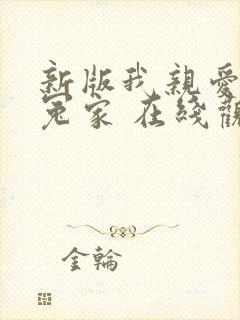 新版我親愛
冤家 在綫觀
金輪